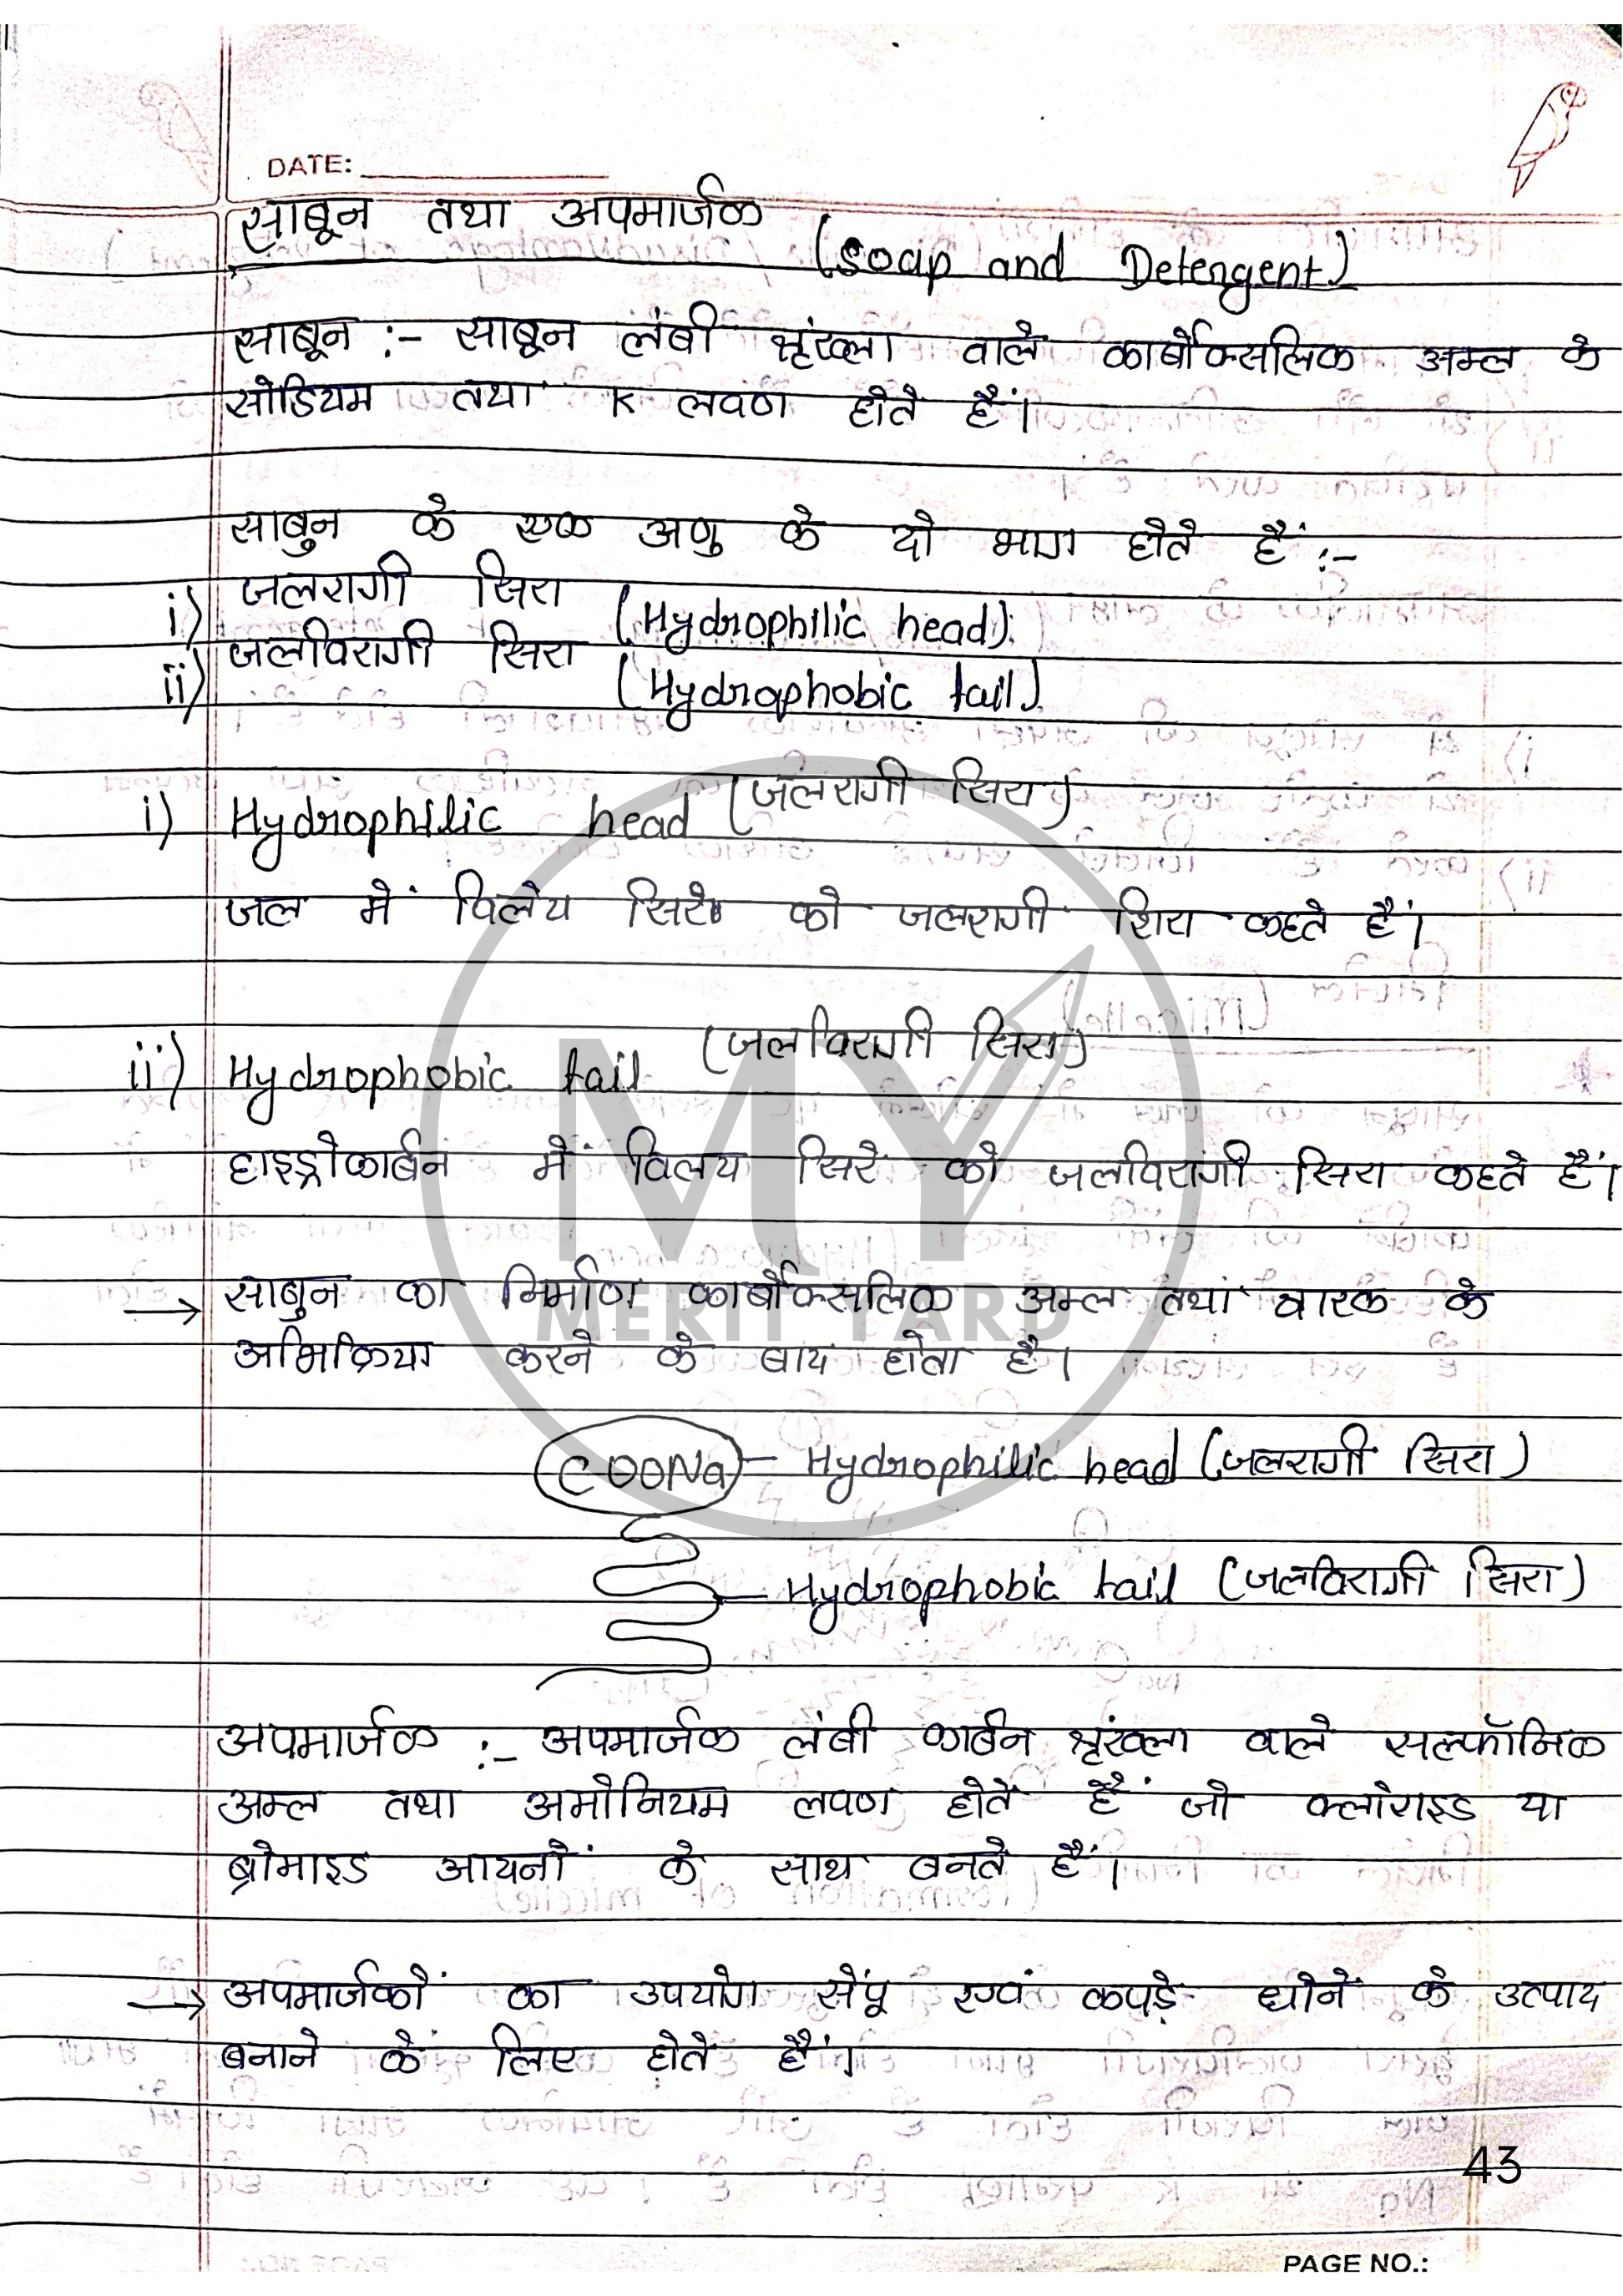 DATE:
साबून तथा अपमार्जक (Soap and Detergent)
साबून :- साबून लंबी श्रृंख्ला वाले कार्बोक्सलिक अम्ल के
सोडियम तथा K लवण होते हैं।
साबुन के एक अणु के दो भाग होते हैं :-
i) जलरागी सिरा (Hydrophilic head).
ii) जलविरागी सिरा (Hydrophobic tail).
i) Hydrophilic head (जलरागी सिरा)
जल में विलेय सिरे को जलरागी शिरा कहते हैं।
ii) Hydrophobic tail (जलविरागी सिरा)
हाइड्रोकार्बन में विलय सिरे को जलविरागी सिरा कहते हैं।
→ साबुन का निर्माण कार्बोक्सलिक अम्ल तथा क्षारक के
अभिक्रिया करने के बाद होता है।
COONa - Hydrophilic head (जलरागी सिरा)
Hydrophobic tail (जलविरागी सिरा)
अपमार्जक :- अपमार्जक लंबी कार्बन श्रृंख्ला वाले सल्फॉनिक
अम्ल तथा अमोनियम लवण होते हैं जो क्लोराइड या
ब्रोमाइड आयनों के साथ बनते हैं।
→ अपमार्जकों का उपयोग सेंपू एवं कपड़े धोने के उत्पाद
बनाने के लिए होते हैं।
MY
MERIT YARD
43
PAGE NO.: